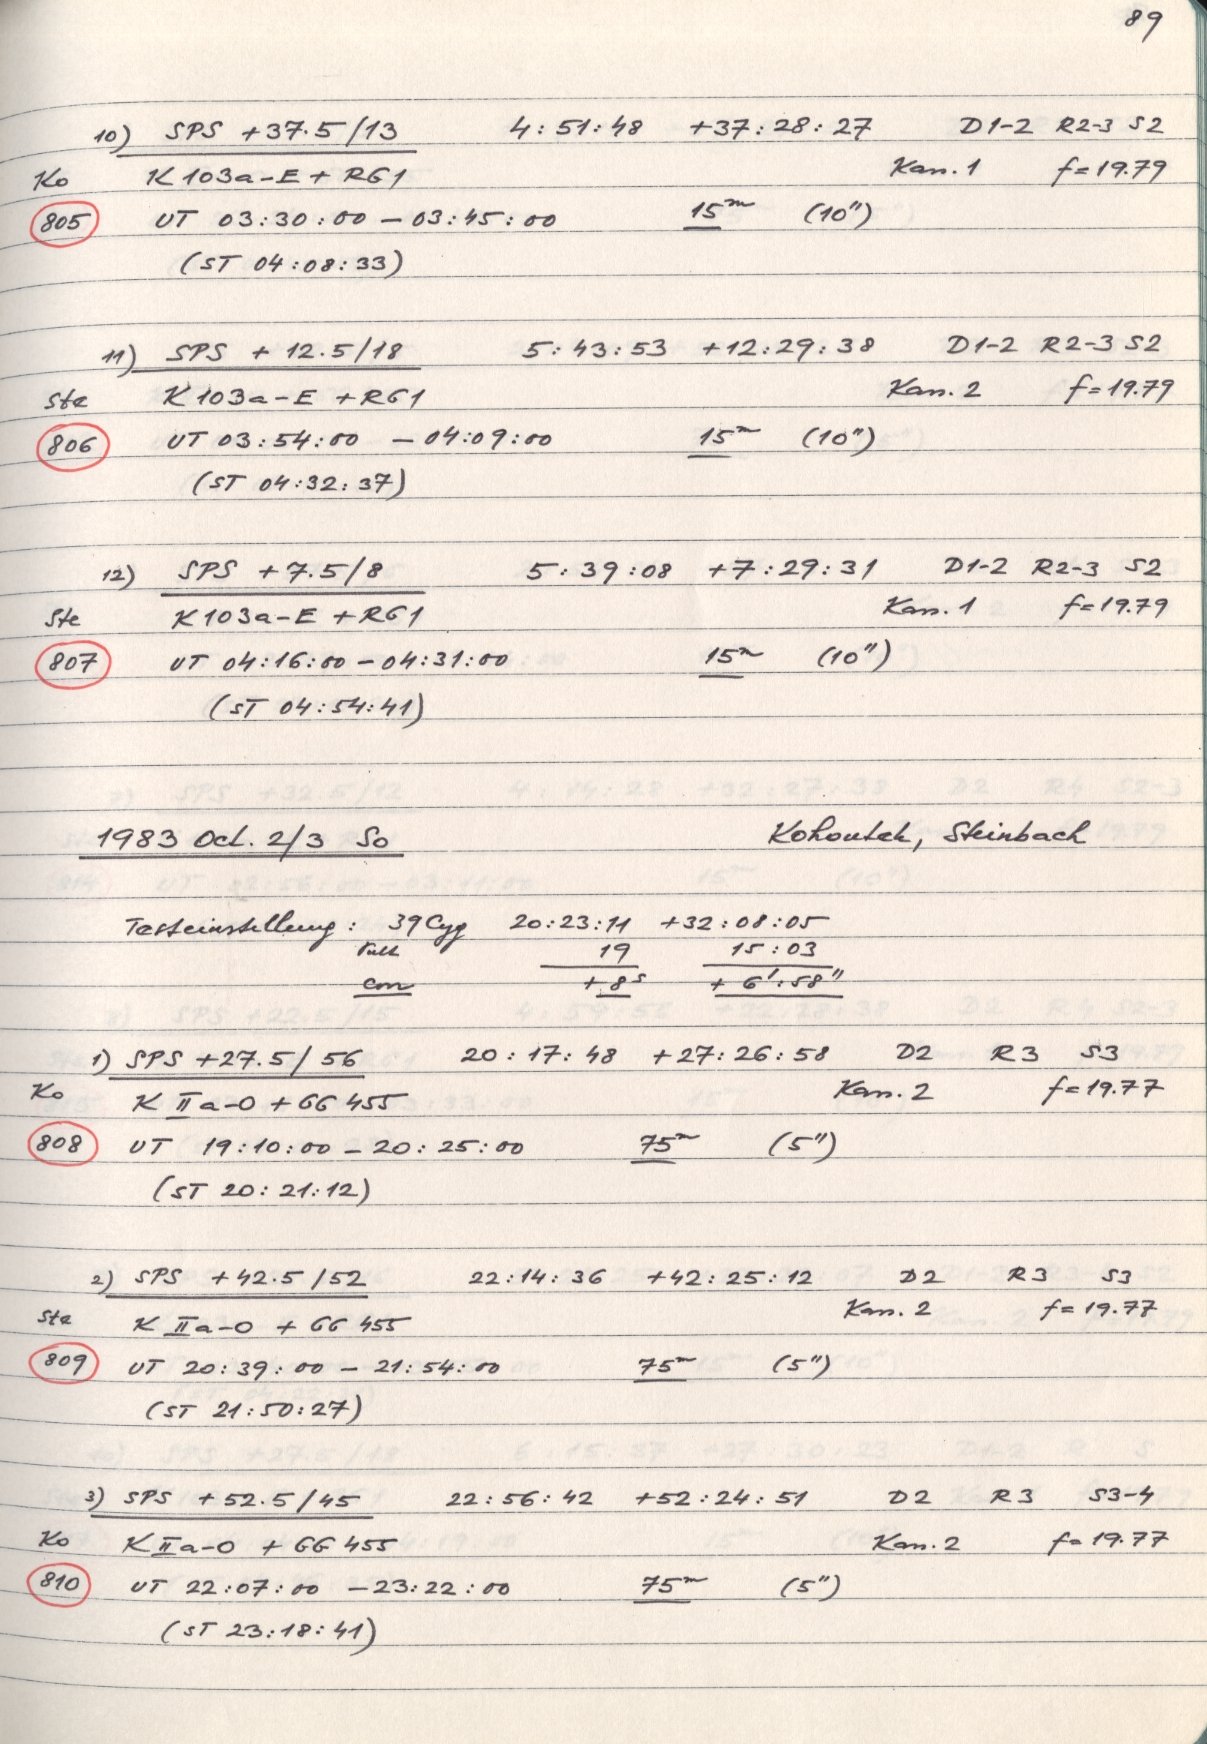 89
10) SPS +37.5/13 4:51:48 +37:28:27 D1-2 R2-3 S2
Ko K 103a-E + RG1 Kan. 1 f=19.79
805 UT 03:30:00 - 03:45:00 15m (10")
(ST 04:08:33)
11) SPS + 12.5/18 5:43:53 +12:29:38 D1-2 R2-3 S2
Ste K 103a-E + RG1 Kan. 2 f=19.79
806 UT 03:54:00 - 04:09:00 15m (10")
(ST 04:32:37)
12) SPS +7.5/8 5:39:08 +7:29:31 D1-2 R2-3 S2
Ste K 103a-E + RG1 Kan. 1 f=19.79
807 UT 04:16:00 - 04:31:00 15m (10")
(ST 04:54:41)
1983 Oct. 2/3 So Kohoutek, Steinbach
Testeinstellung: 39 Cyg 20:23:11 +32:08:05
19 15:03
corr +8s + 6':58"
1) SPS +27.5/56 20:17:48 +27:26:58 D2 R3 S3
Ko K IIa-O + GG 455 Kan. 2 f=19.77
808 UT 19:10:00 - 20:25:00 75m (5")
(ST 20:21:12)
2) SPS +42.5/52 22:14:36 +42:25:12 D2 R3 S3
Ste K IIa-O + GG 455 Kan. 2 f=19.77
809 UT 20:39:00 - 21:54:00 75m (5")
(ST 21:50:27)
3) SPS +52.5/45 22:56:42 +52:24:51 D2 R3 S3-4
Ko K IIa-O + GG 455 Kan. 2 f=19.77
810 UT 22:07:00 - 23:22:00 75m (5")
(ST 23:18:41)